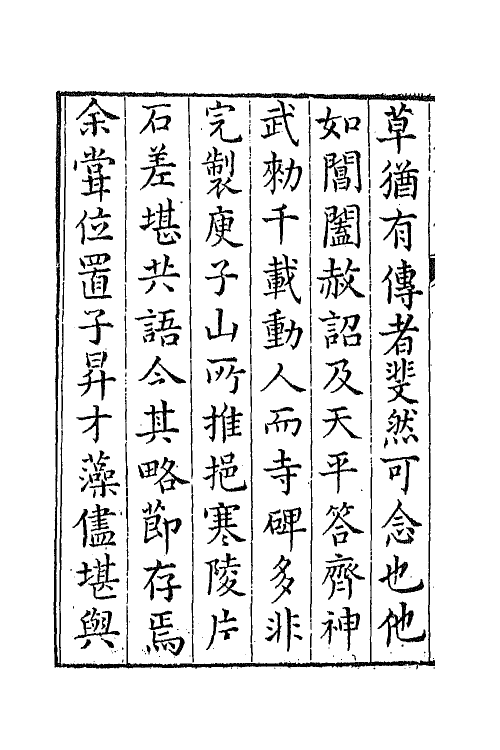 草猶有傳者斐然可念也他
如閶闔赦詔及天平答齊神
武勑千載動人而寺碑多非
完製庾子山所推挹寒陵片
石差堪共語今其略節存焉
余嘗位置子昇才藻儘堪與